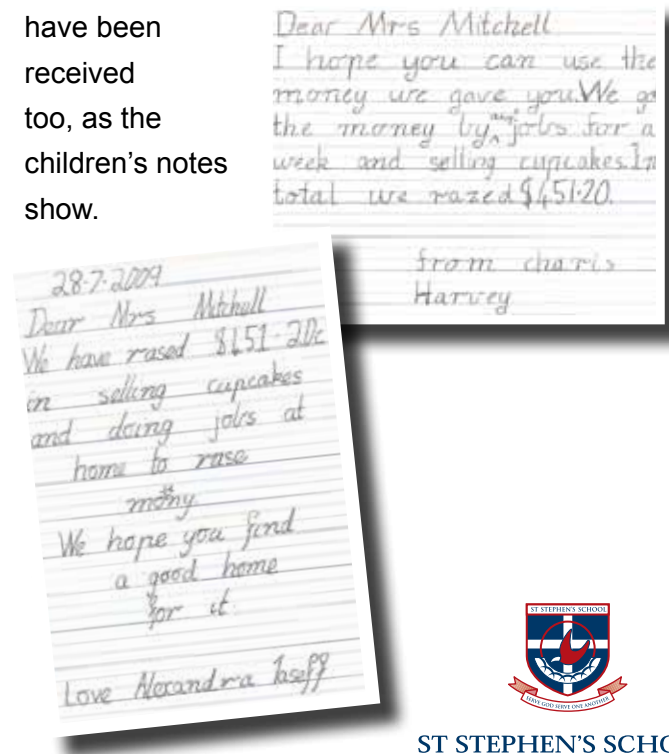 have been
received
too, as the
children's notes
show.
Dear Mrs Mitchell
I hope you can use the
money we gave you. We go
the money by jobs for a
week and selling cupcakes. In
total we razed $451.20.
from charis
Harvey
28-7-2009
Dear Mrs Mitchell
We have rased $451-20c
in selling cupcakes
and doing jobs at
home to rase
mony.
We hope you find
a good home
for it.
Love Alexandra
ST STEPHEN'S SCHOOL
SERVE GOD SERVE ONE ANOTHER
ST STEPHEN'S SCHO